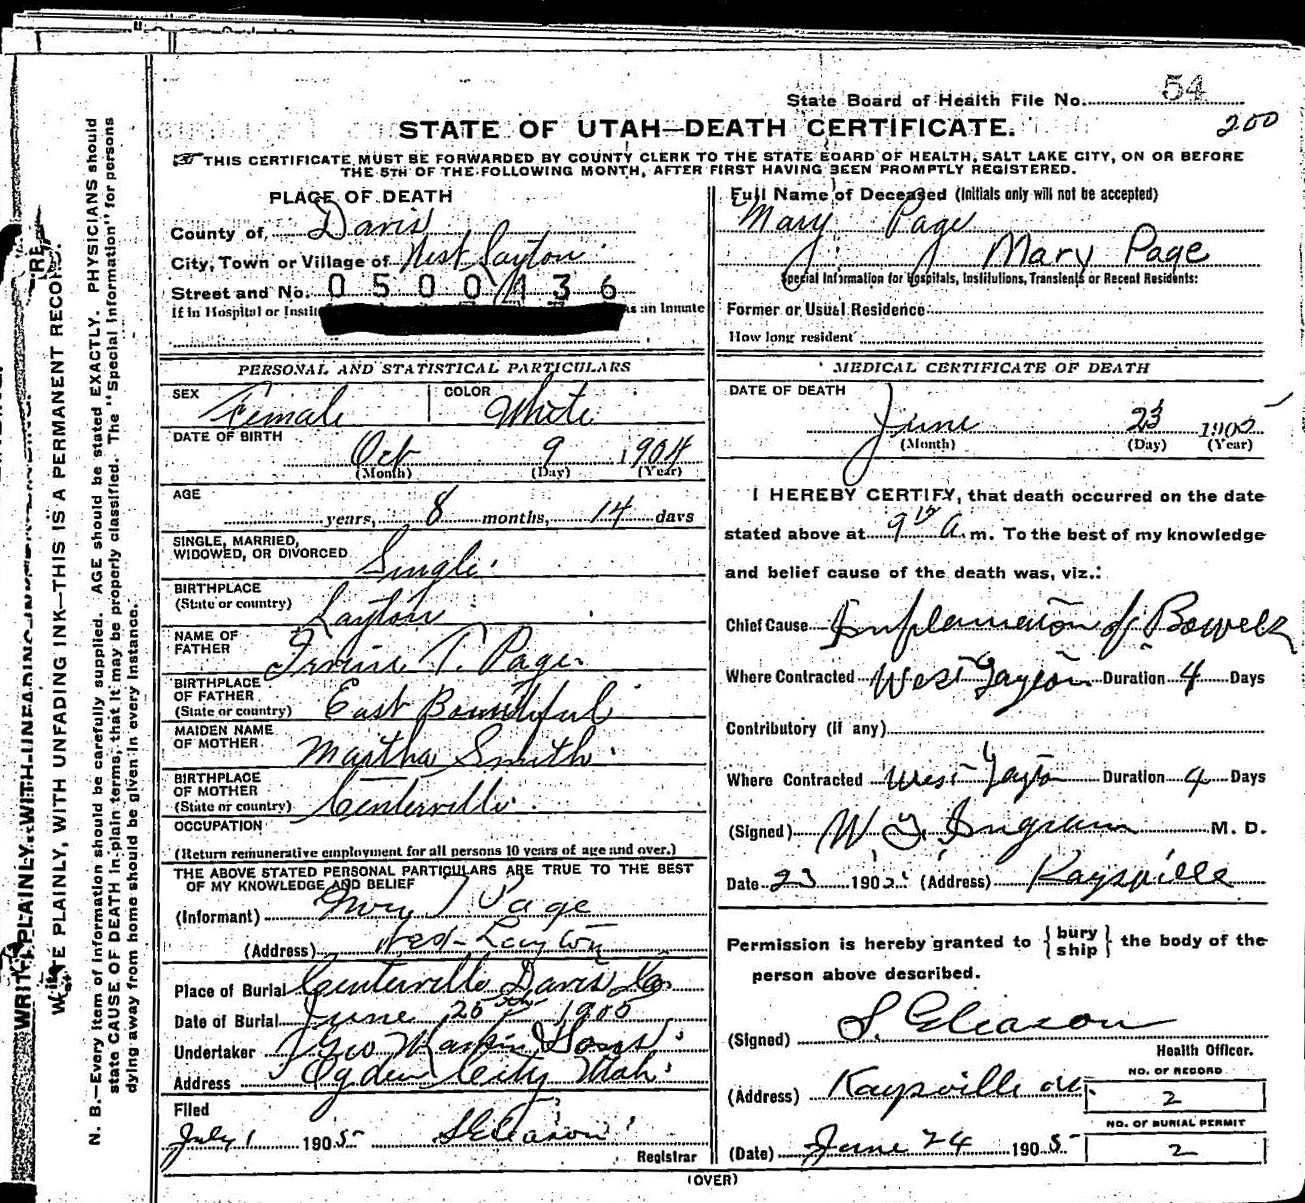 State Board of Health File No. 54
200
STATE OF UTAH—DEATH CERTIFICATE.
THIS CERTIFICATE MUST BE FORWARDED BY COUNTY CLERK TO THE STATE BOARD OF HEALTH, SALT LAKE CITY, ON OR BEFORE
THE 5TH OF THE FOLLOWING MONTH, AFTER FIRST HAVING BEEN PROMPTLY REGISTERED.
PLACE OF DEATH
County of Davis
City, Town or Village of West Layton
Street and No. 0500136
If in Hospital or Instit as an Inmate
Full Name of Deceased (Initials only will not be accepted)
Mary Page
Mary Page
Special Information for Hospitals, Institutions, Transients or Recent Residents:
Former or Usual Residence
How long resident
PERSONAL AND STATISTICAL PARTICULARS
SEX Female COLOR White
DATE OF BIRTH
Oct 9 1904
(Month) (Day) (Year)
AGE
years, 8 months, 14 days
SINGLE, MARRIED,
WIDOWED, OR DIVORCED Single
BIRTHPLACE
(State or country) Layton
NAME OF
FATHER T. Page
BIRTHPLACE
OF FATHER
(State or country) East Bountiful
MAIDEN NAME
OF MOTHER Martha Smith
BIRTHPLACE
OF MOTHER
(State or country) Centerville
OCCUPATION
(Return remunerative employment for all persons 10 years of age and over.)
THE ABOVE STATED PERSONAL PARTICULARS ARE TRUE TO THE BEST
OF MY KNOWLEDGE AND BELIEF
(Informant) T Page
(Address) West Layton
Place of Burial Centerville Davis Co.
Date of Burial June 25th 1905
Undertaker Geo Sons
Address Ogden City Utah
Filed
July 1 1905 S Gleason
Registrar
MEDICAL CERTIFICATE OF DEATH
DATE OF DEATH
June 23 1905
(Month) (Day) (Year)
I HEREBY CERTIFY, that death occurred on the date
stated above at 9 a.m. To the best of my knowledge
and belief cause of the death was, viz.:
Chief Cause Inflamation of Bowels
Where Contracted West Layton Duration 4 Days
Contributory (if any)
Where Contracted West Layton Duration 4 Days
(Signed) Ingram M. D.
Date 23 1905 (Address) Kaysville
Permission is hereby granted to { bury ship } the body of the
person above described.
(Signed) S. Gleason
Health Officer.
(Address) Kaysville
NO. OF RECORD
2
NO. OF BURIAL PERMIT
2
(Date) June 24 1905
(OVER)
WRITE PLAINLY, WITH UNFADING INK—THIS IS A PERMANENT RECORD.
N. B.—Every item of information should be carefully supplied. AGE should be stated EXACTLY. PHYSICIANS should
state CAUSE OF DEATH in plain terms, that it may be properly classified. The "Special Information" for persons
dying away from home should be given in every instance.